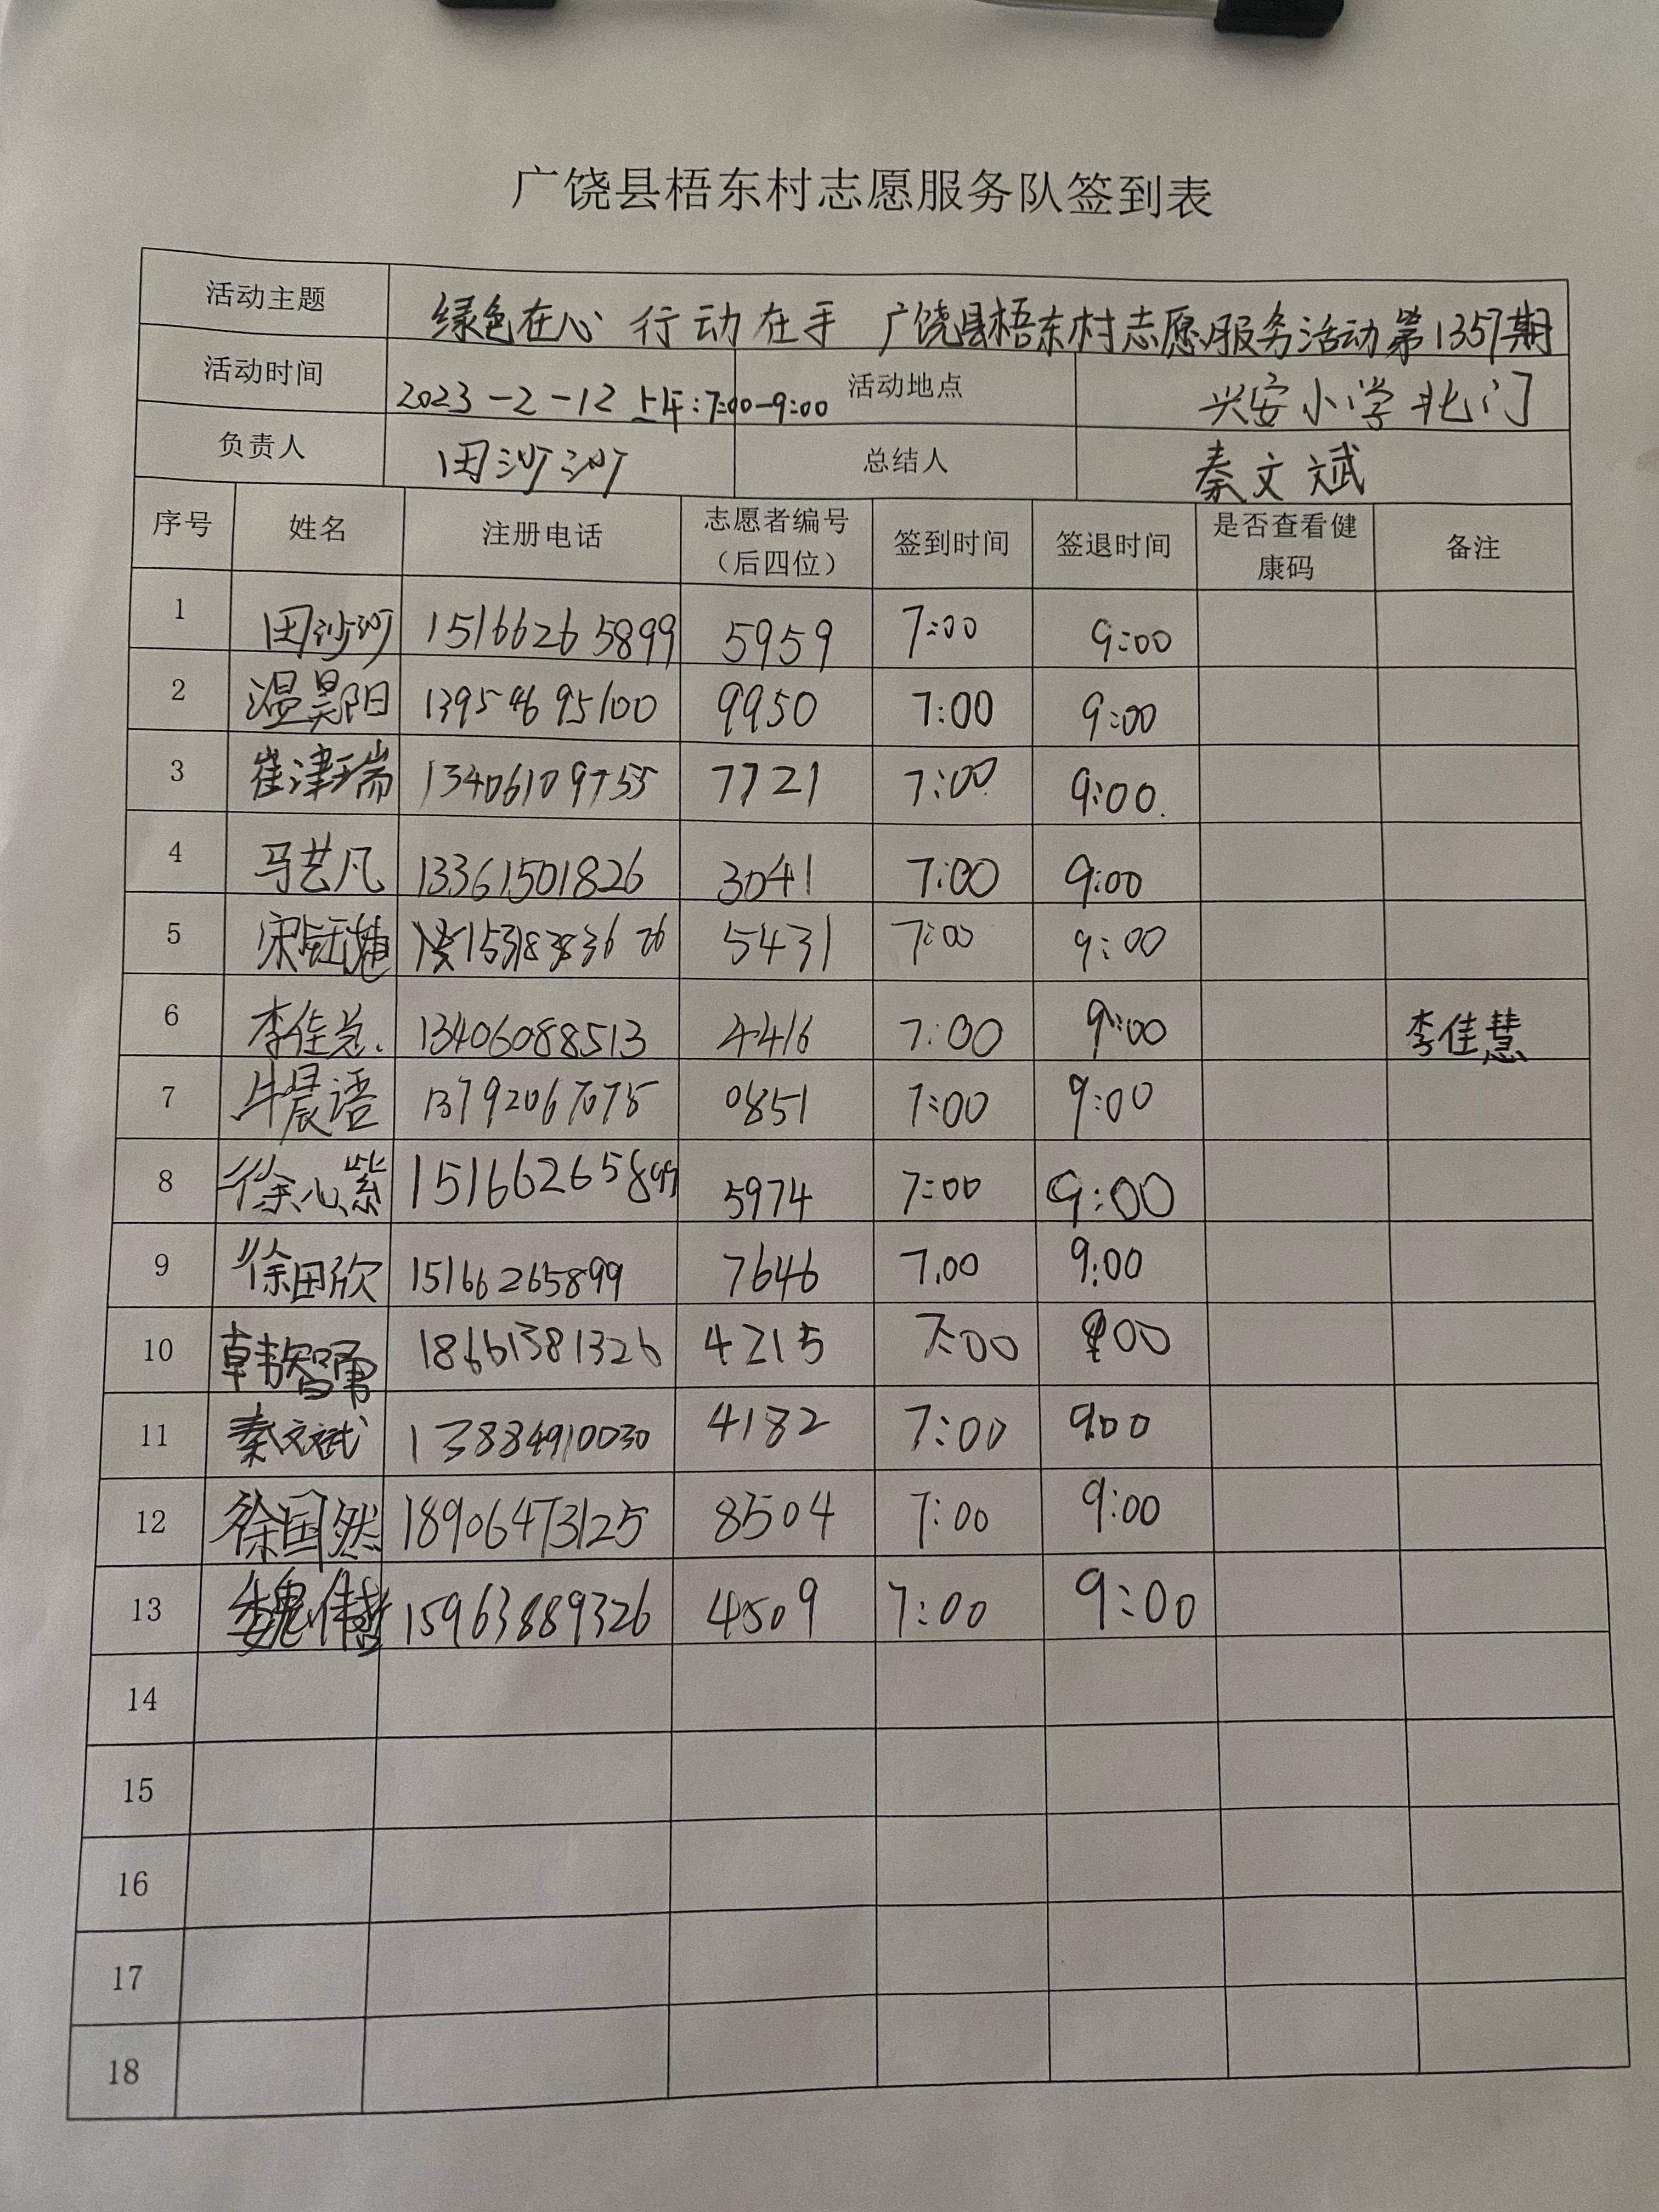 广饶县梧东村志愿服务队签到表
活动主题 绿色在心 行动在手 广饶县梧东村志愿服务活动第1357期
活动时间 2023-2-12 上午:7:00-9:00 活动地点 兴安小学北门
负责人 田沙沙 总结人 秦文斌
序号 姓名 注册电话 志愿者编号（后四位） 签到时间 签退时间 是否查看健康码 备注
1 田沙沙 15166265899 5959 7:00 9:00
2 温昊阳 13954695100 9950 7:00 9:00
3 崔津瑞 13406109755 7721 7:00 9:00.
4 马艺凡 13361501826 3041 7:00 9:00
5 宋钰 5431 7:00 9:00
6 李佳 13406088513 4416 7:00 9:00 李佳慧
7 牛晨语 13792067075 0851 7:00 9:00
8 徐心紫 15166265899 5974 7:00 9:00
9 徐田欣 15166265899 7646 7.00 9:00
10 韩智勇 18661381326 4215 7:00 9:00
11 秦文斌 13884910030 4182 7:00 9:00
12 徐国然 18906473125 8504 7:00 9:00
13 魏伟 15963889326 4509 7:00 9:00
14
15
16
17
18